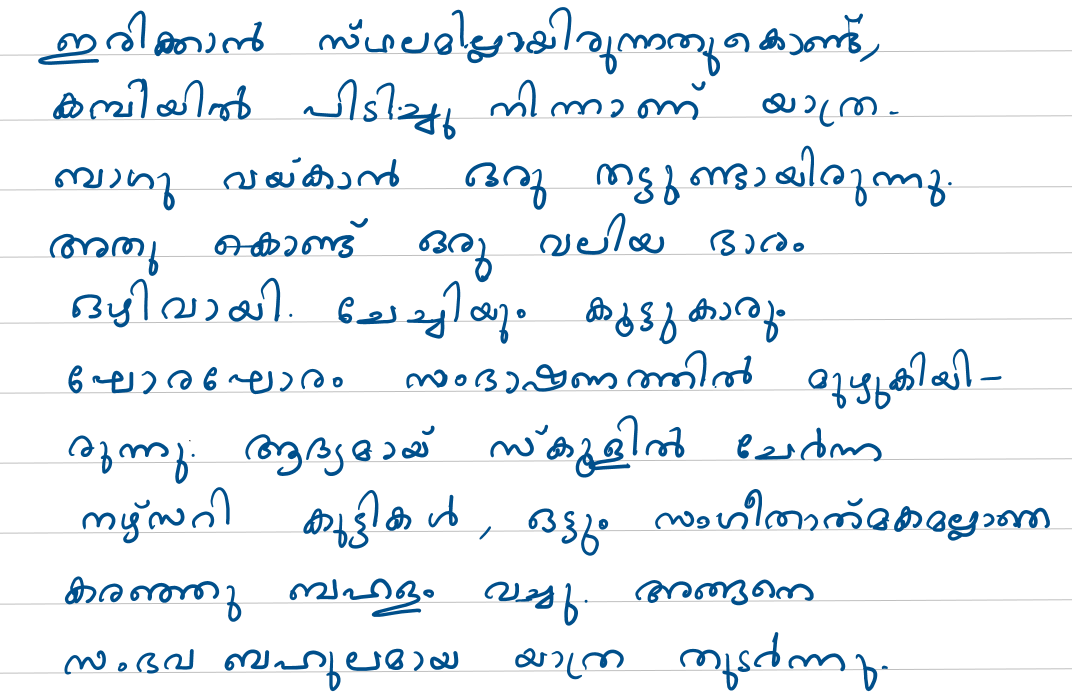 ഇരിക്കാൻ സ്ഥലമില്ലായിരുന്നതുകൊണ്ട്,
കമ്പിയിൽ പിടിച്ചു നിന്നാണ് യാത്ര.
ബാഗു വയ്കാൻ ഒരു തട്ടുണ്ടായിരുന്നു.
അതു കൊണ്ട് ഒരു വലിയ ഭാരം
ഒഴിവായി. ചേച്ചിയും കൂട്ടുകാരും
ഘോരഘോരം സംഭാഷണത്തിൽ മുഴുകിയി-
രുന്നു. ആദ്യമായ് സ്കൂളിൽ ചേർന്ന
നഴ്സറി കുട്ടികൾ, ഒട്ടും സംഗീതാത്മകമല്ലാതെ
കരഞ്ഞു ബഹളം വച്ചു. അങ്ങനെ
സംഭവ ബഹുലമായ യാത്ര തുടർന്നു.